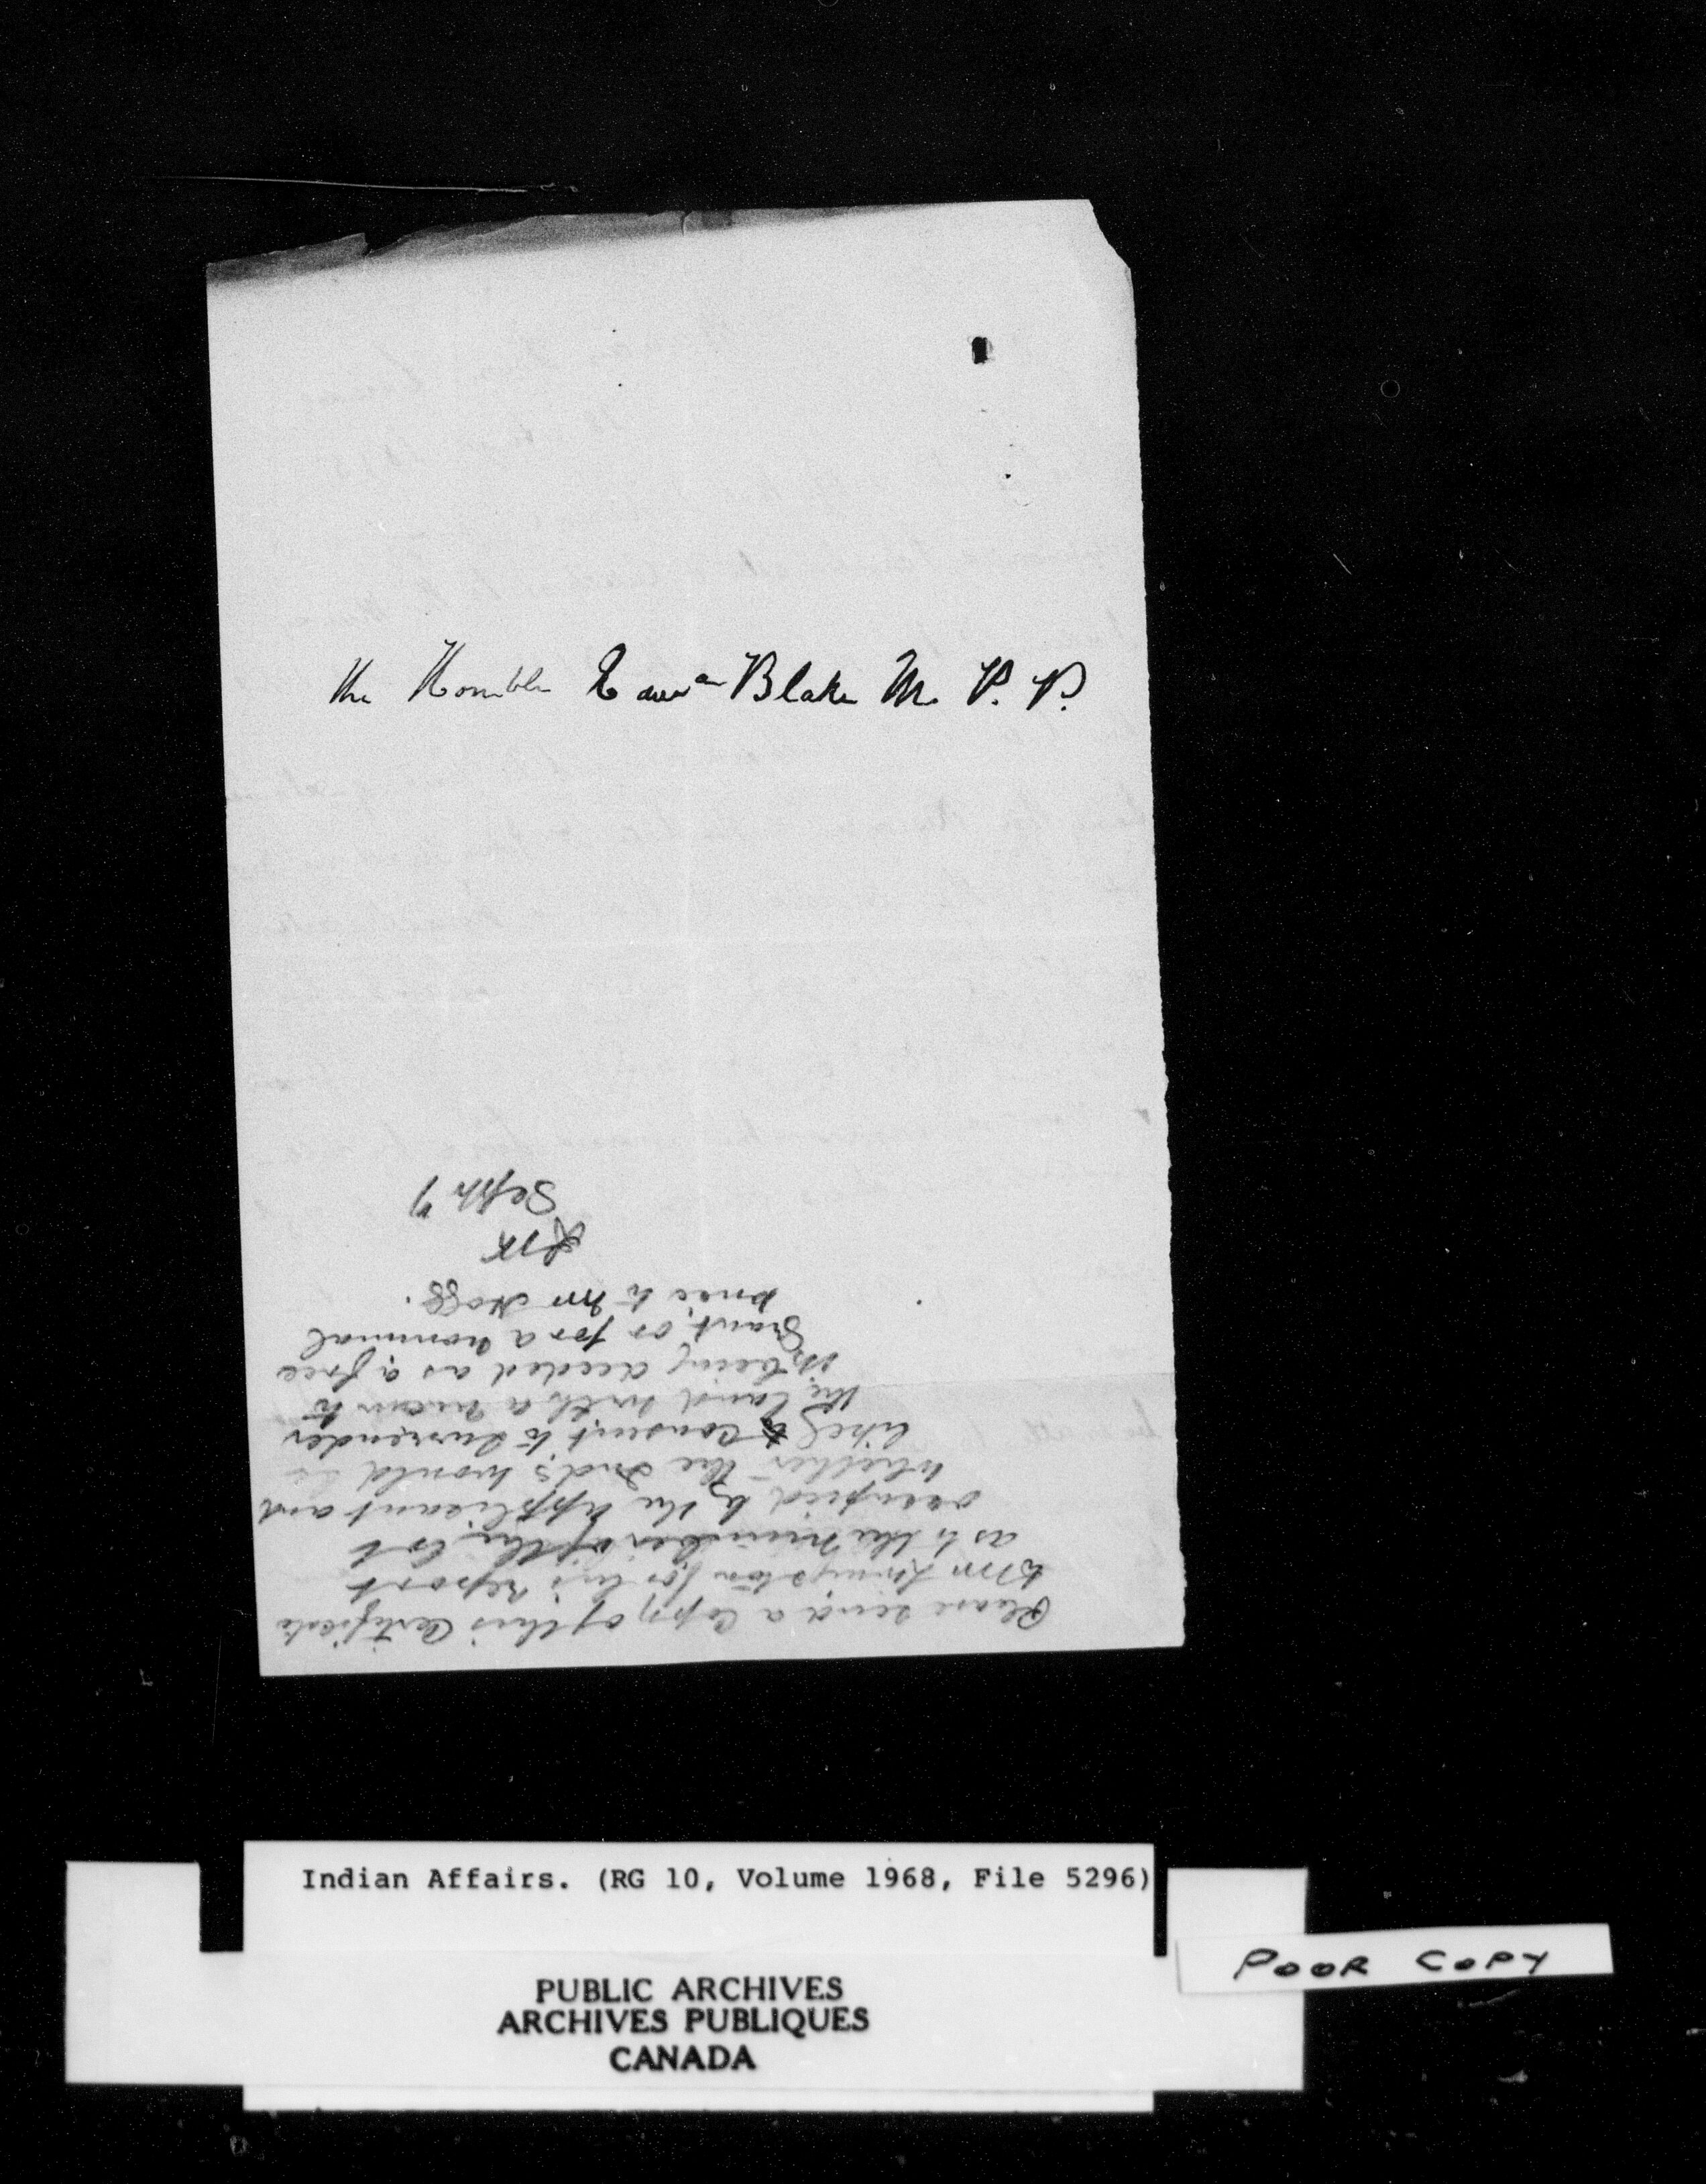 The Honrble Edwd Blake M. P. P.
Please send a copy of this Certificate
to Mr Livingston for his report
as to the number of the lot
occupied by the applicant and
whether the Inds would be
likely to consent to surrender
the land with a view to
its being deeded as a free
grant, or for a nominal
price to Mr Hogg.
Septr 7
Indian Affairs. (RG 10, Volume 1968, File 5296)
PUBLIC ARCHIVES
ARCHIVES PUBLIQUES
CANADA
POOR COPY